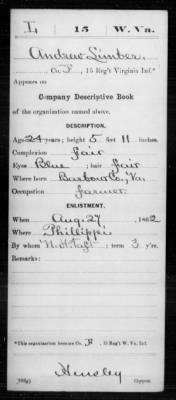 L | 15 | W. Va.
Andrew Limber,
Co. F, 15 Reg't Virginia Inf.*
Appears on
Company Descriptive Book
of the organization named above.
DESCRIPTION.
Age 24 years; height 5 feet 11 inches.
Complexion fair
Eyes Blue; hair fair
Where born Barbour Co., Va.
Occupation farmer
ENLISTMENT.
When Aug. 27, 1862
Where Phillippi
By whom N. H. Taft; term 3 y'rs.
Remarks:
*This organization became Co. F, 15 Reg't W. Va. Inf.
Hensley
Copyist.